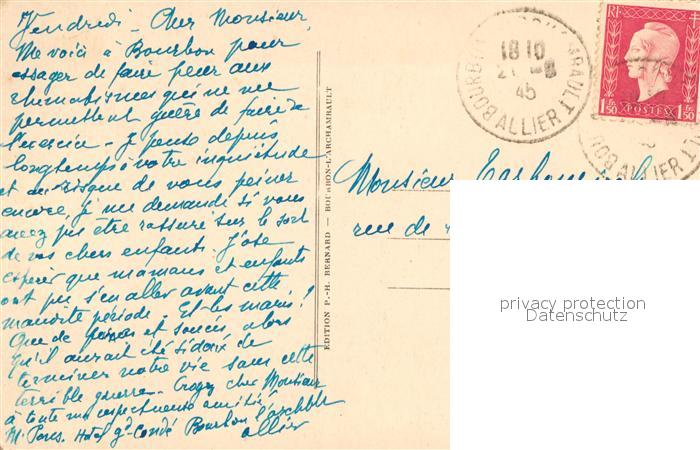 Vendredi - Cher Monsieur,
Me voici à Bourbon pour
essayer de faire peur aux
rhumatismes qui ne me
permettent guère de faire de
l'exercice - Je pense depuis
longtemps à votre inquiétude
et au risque de vous peiner
encore, je me demande si vous
avez pu être rassuré sur le sort
de vos chers enfants. J'ose
espérer que mamans et enfants
ont pu s'en aller avant cette
maudite période. Et les maris!
Que de et soucis, alors
Qu'il aurait été si doux de
terminer notre vie sans cette
terrible guerre. Croyez cher Monsieur
à toute ma respectueuse amitié
M. Hotel gd Condé Bourbon l'archblt
allier
EDITION P.-H. BERNARD — BOURBON-L'ARCHAMBAULT
Monsieur
rue de
BOURBON ARCHAMBAULT
18 10
21 -8
45
ALLIER
RF
1 Fr. 50 POSTES 1 Fr. 50
BOURB
ALLIER
privacy protection
Datenschutz